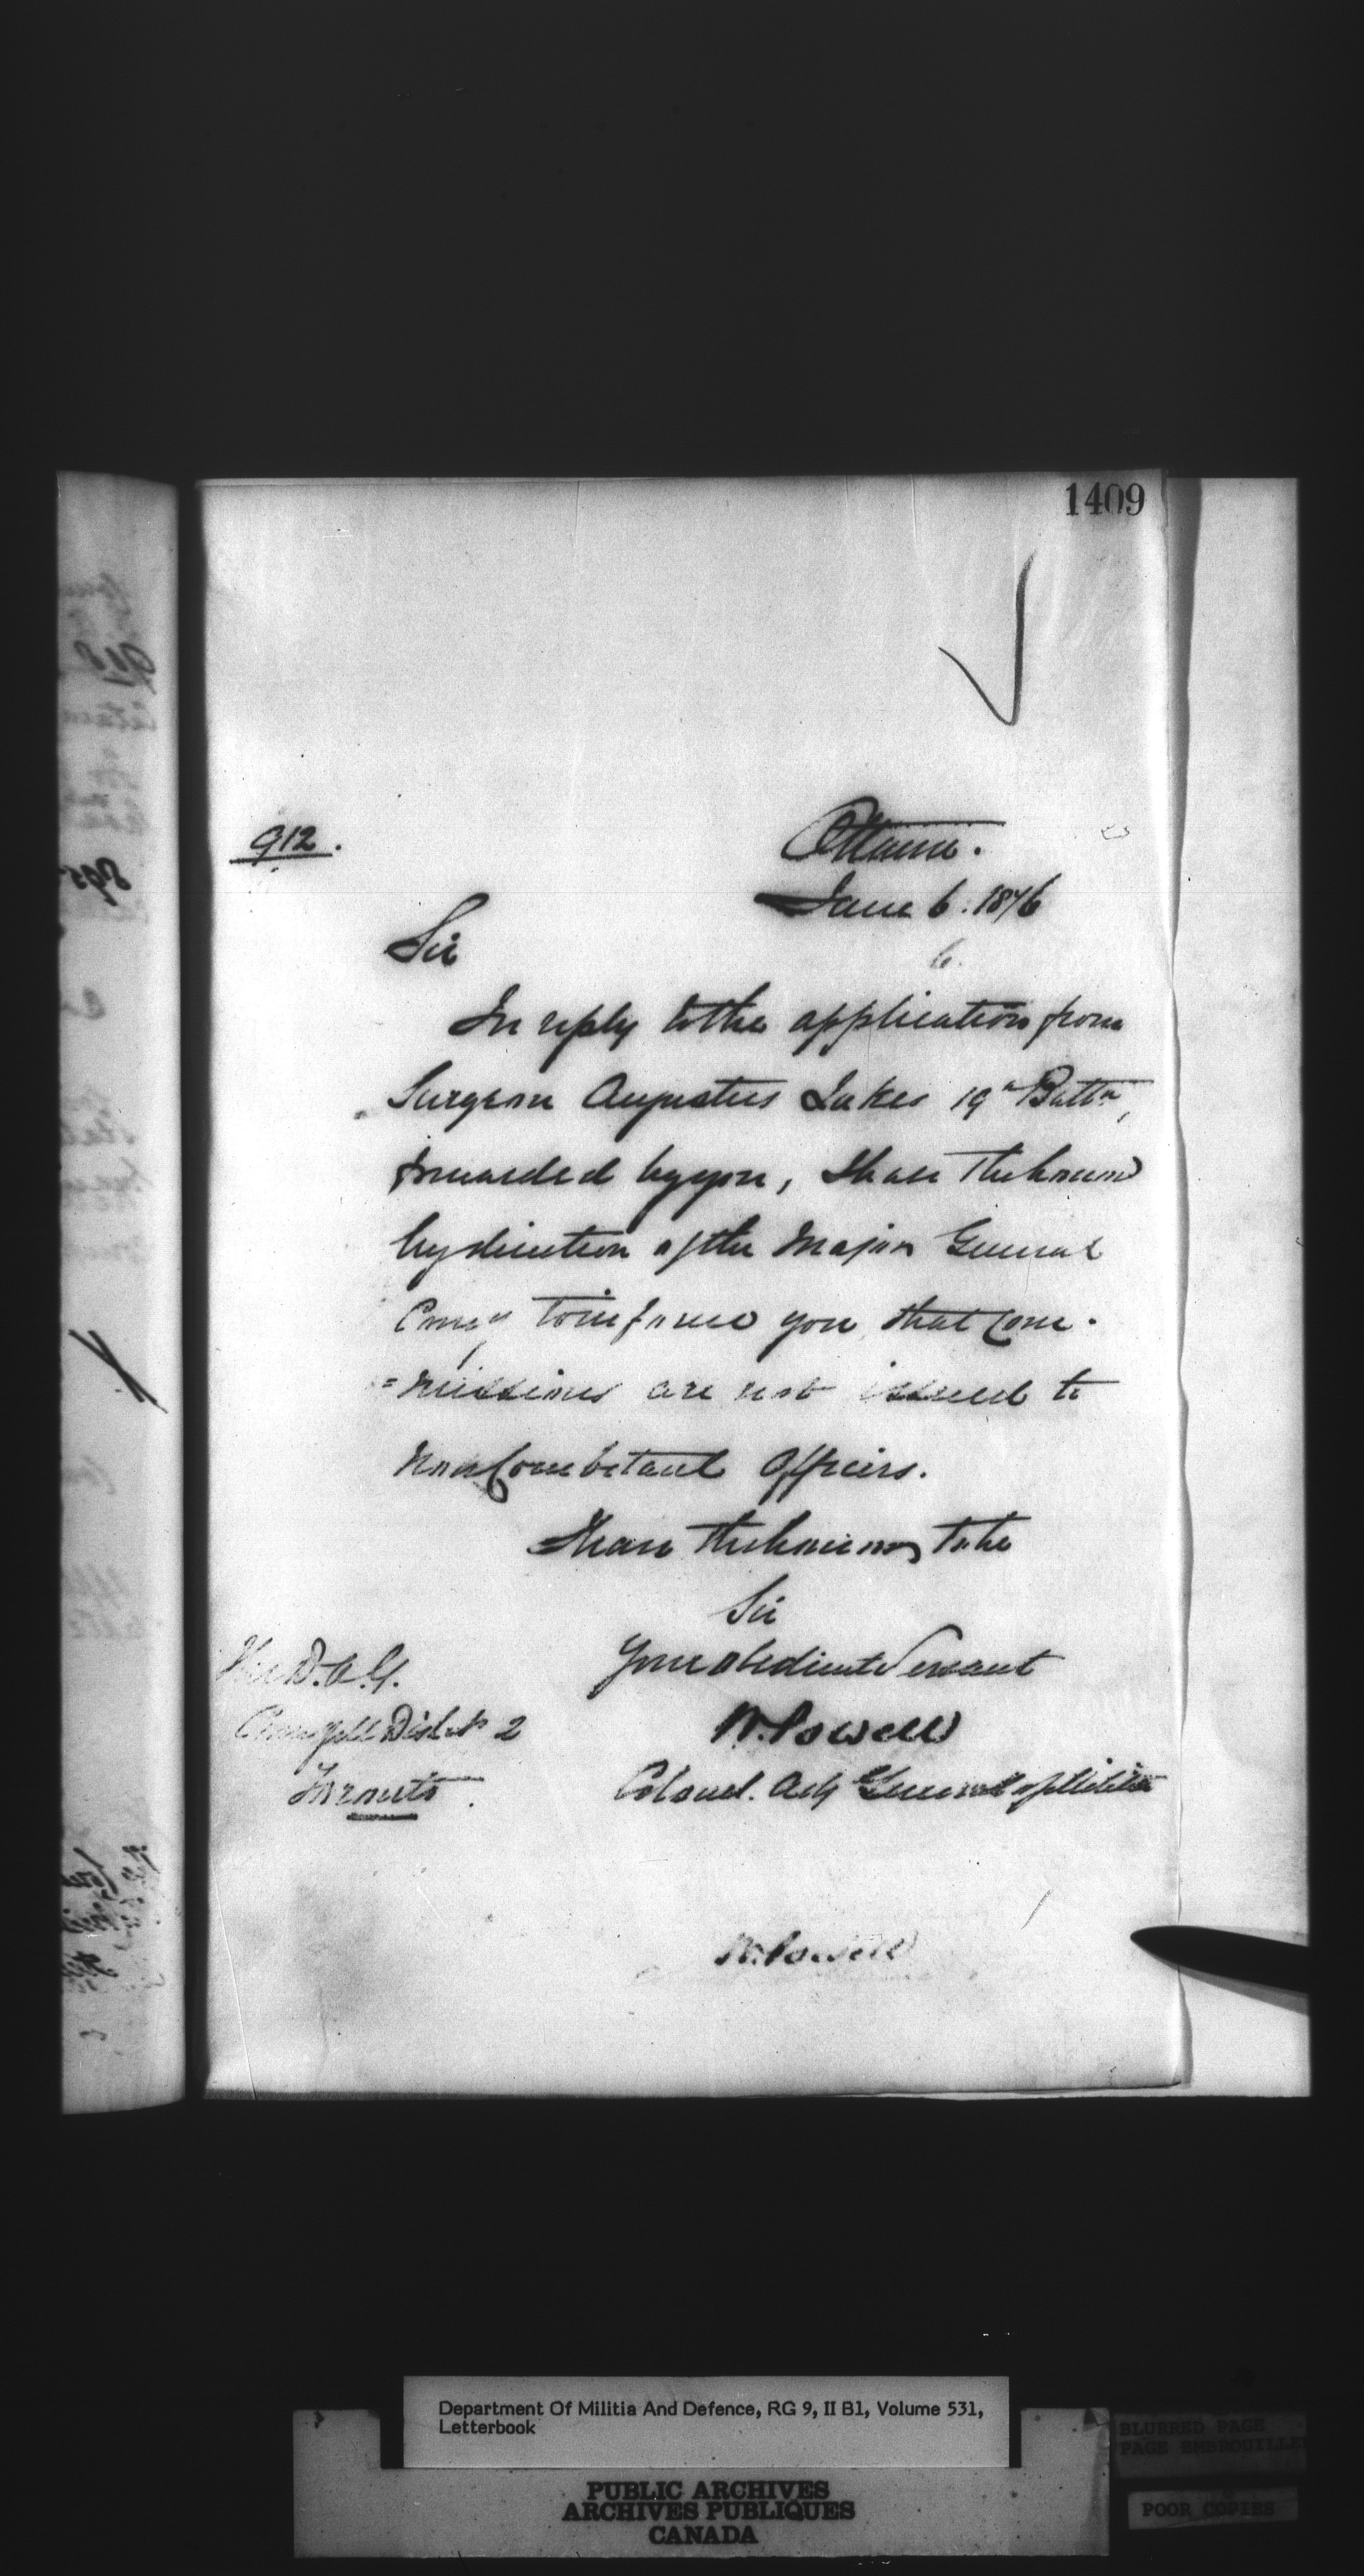 1409
912.
Ottawa.
June 6. 1876
Sir
In reply to the application from
Surgeon Augustus Jukes 19th Battn,
forwarded by you, I have the honour
by direction of the Major General
Comg to inform you that Com-
=missions are not issued to
Non Combatant Officers.
I have the honour to be
Sir
Your obedient Servant
W. Powell
Colonel. Adj General of Militia
The D.A.G.
Comg Mil Dist No 2
Toronto.
W. Powell
Department Of Militia And Defence, RG 9, II B1, Volume 531,
Letterbook
PUBLIC ARCHIVES
ARCHIVES PUBLIQUES
CANADA
BLURRED PAGE
PAGE EMBROUILLEE
POOR COPIES